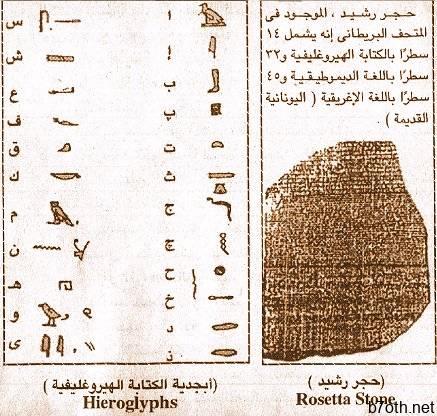 حجر رشيد ، الموجود فى
المتحف البريطانى إنه يشمل ١٤
سطرًا بالكتابة الهيروغليفية و٣٢
سطرًا باللغة الديموطيقية و٤٥
سطرًا باللغة الإغريقية ( اليونانية
القديمة ) .
( حجر رشيد )
Rosetta Stone
b7oth.net
ا
إ
ب
پ
ت
ث
ج
چ
ح
خ
د
ذ
س
ش
ع
ف
ق
ك
م
ن
هـ
و
ى
( أبجدية الكتابة الهيروغليفية )
Hieroglyphs